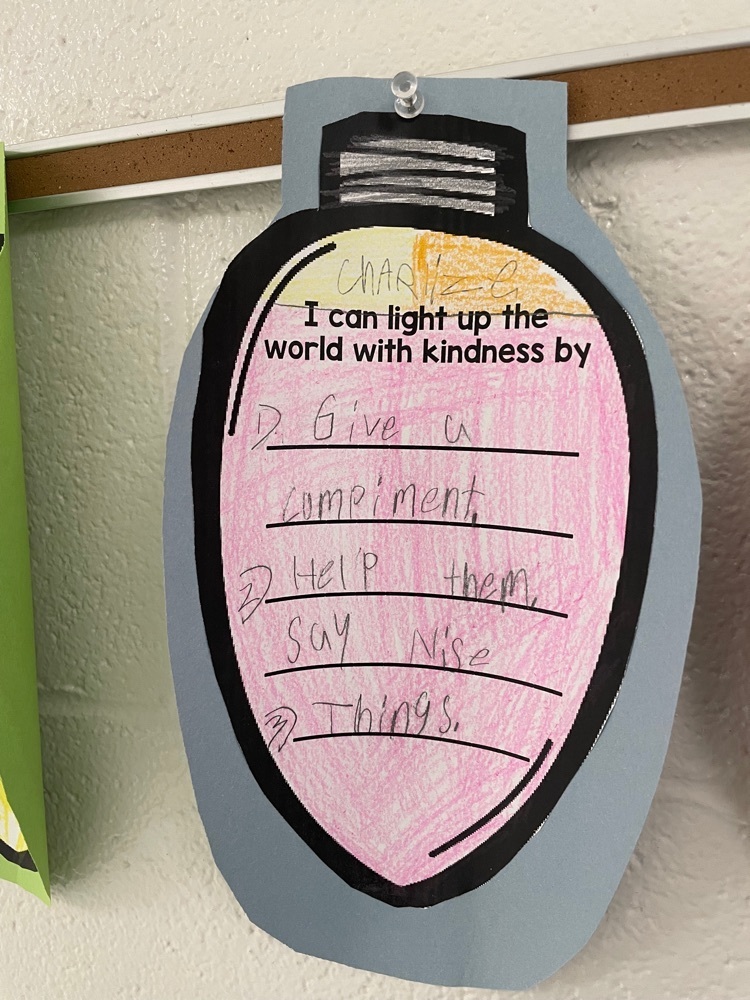 CHARlIzE
I can light up the
world with kindness by
1). Give a
compiment,
2) Help them,
Say Nise
3) Things.